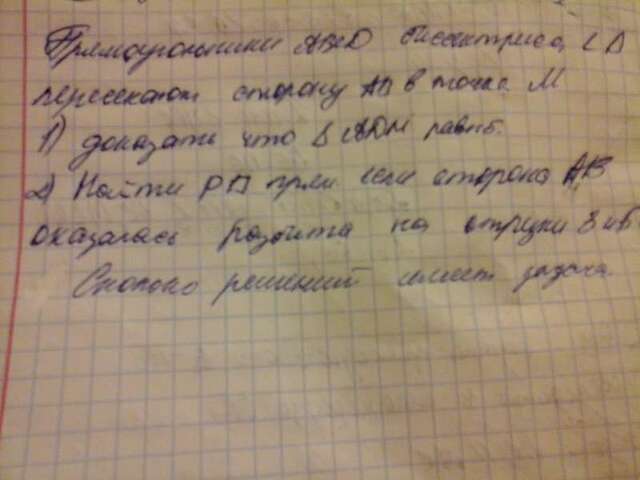 Прямоугольники ABCD биссектриса ∠D
пересекают сторону AB в точке M
1) доказать что Δ ADM равнб.
2) Найти P прям если сторона AB
оказалась разбита на отрезки 3 и 5
Сколько решений имеет задача